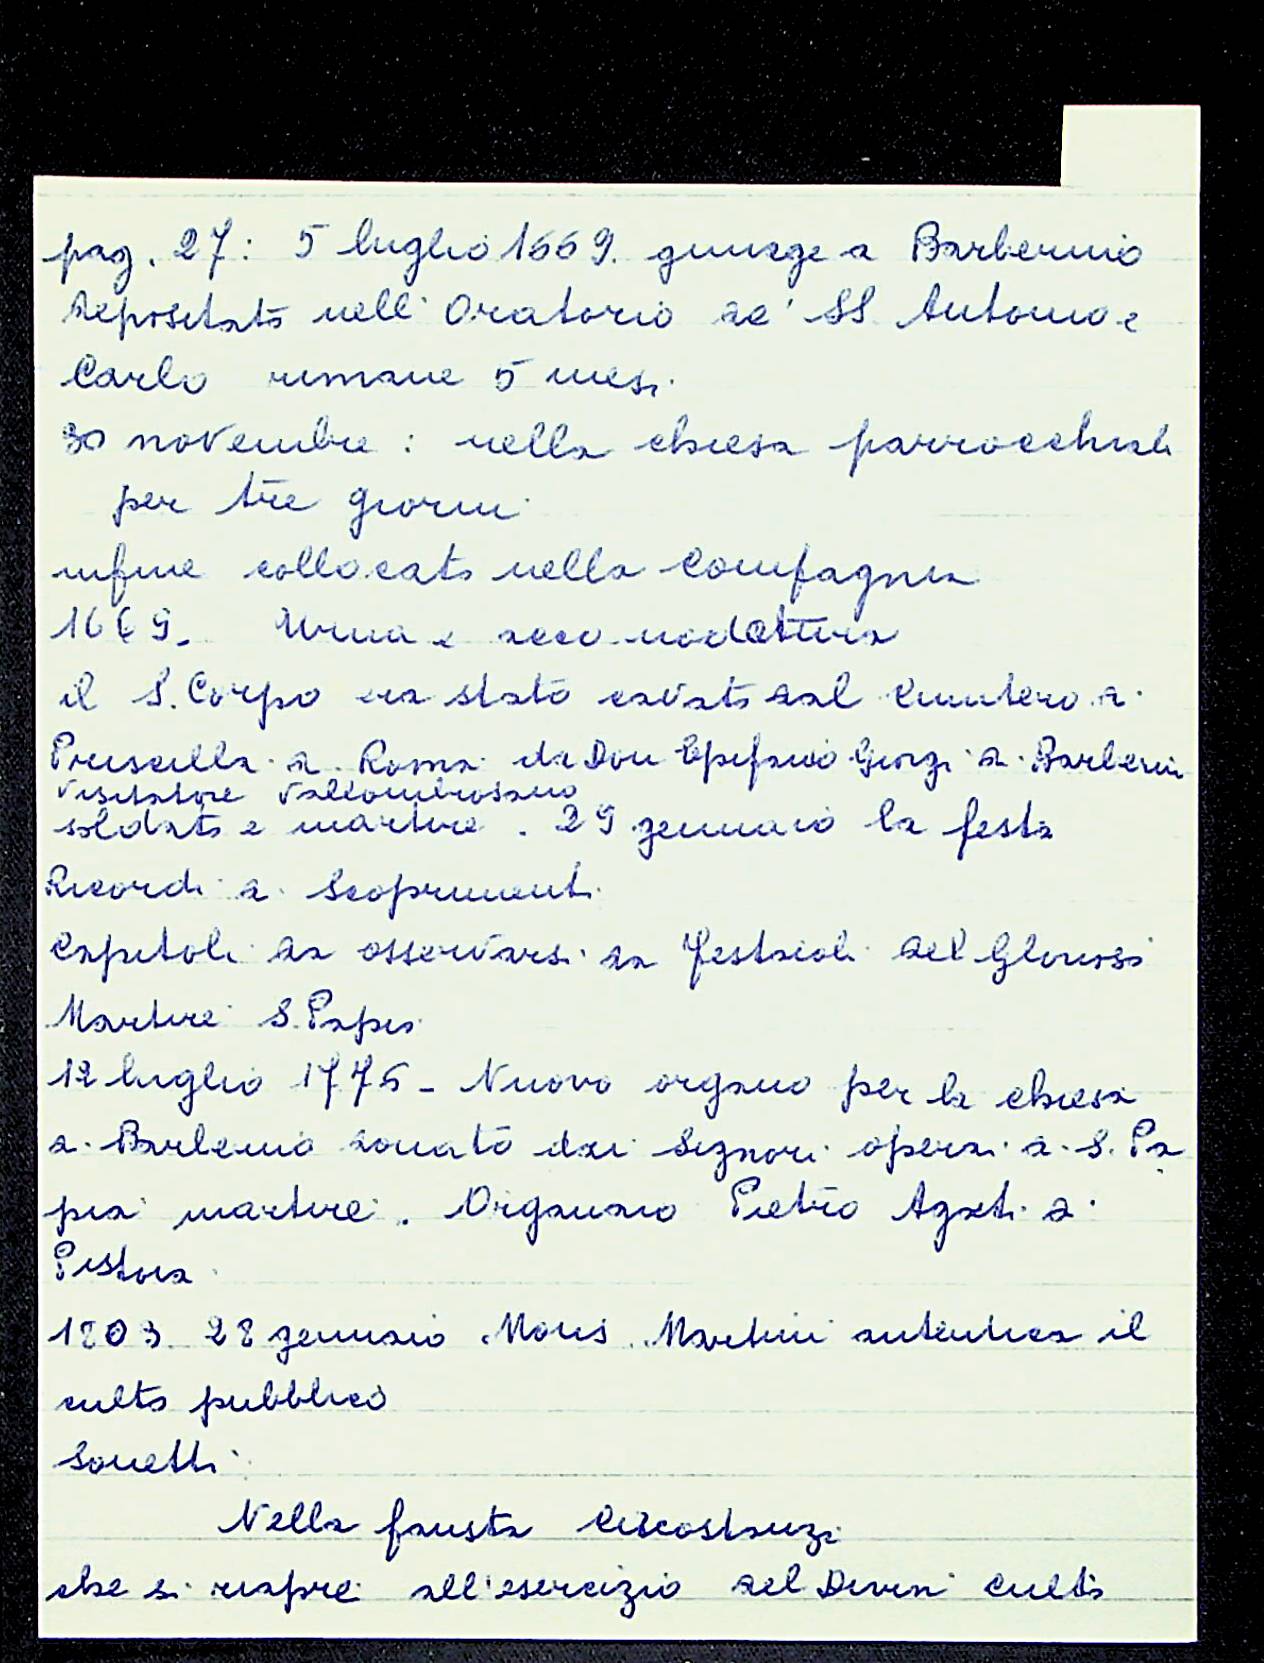 pag. 27: 5 luglio 1669. giunge a Barberino
depositato nell'Oratorio de' SS Antonio e
Carlo rimane 5 mesi.
30 novembre: nella chiesa parrocchiale
per tre giorni
infine collocato nella Compagnia
1669. Urna e accomodatura
il S. Corpo era stato cavato dal Cimitero di
Priscilla di Roma da Don Epifanio Giorgi di Barberino
Visitatore Vallombrosano
soldato e martire. 29 gennaio la festa
Ricordi di Scoprimenti
Capitoli da osservarsi da Festaioli del Glorioso
Martire S. Papia
12 luglio 1775 - Nuovo organo per la chiesa
di Barberino donato dai Signori operai di S. Pa
pia martire. Organaio Pietro Agati di
Pistoia
1803 28 gennaio Mons. Martini autentica il
culto pubblico
Sonetti
Nella fausta Circostanza
che si riapre all'esercizio del Divin Culto